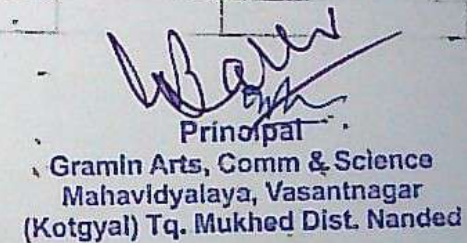 Principal
Gramin Arts, Comm & Science
Mahavidyalaya, Vasantnagar
(Kotgyal) Tq. Mukhed Dist. Nanded